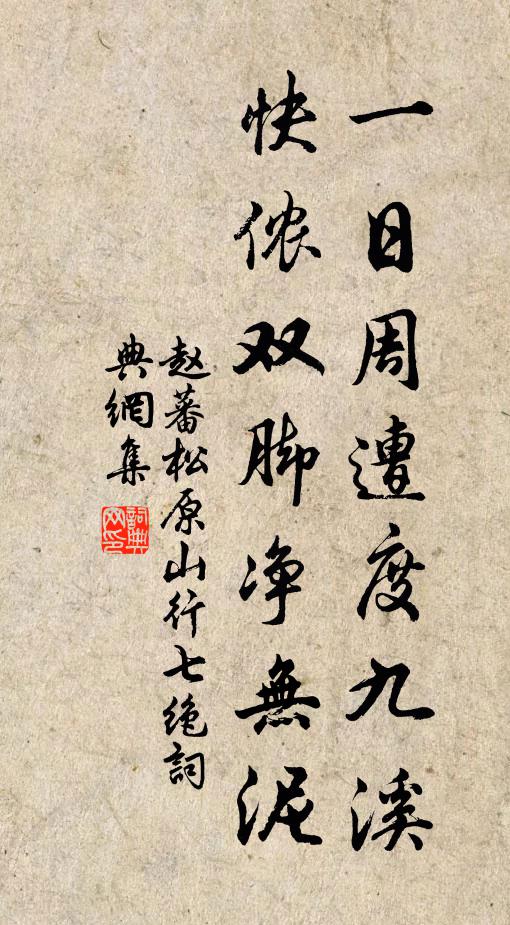 一日周遭度九溪
快侬双脚净無泥
赵蕃松原山行七绝詞
典網集
詞典网印